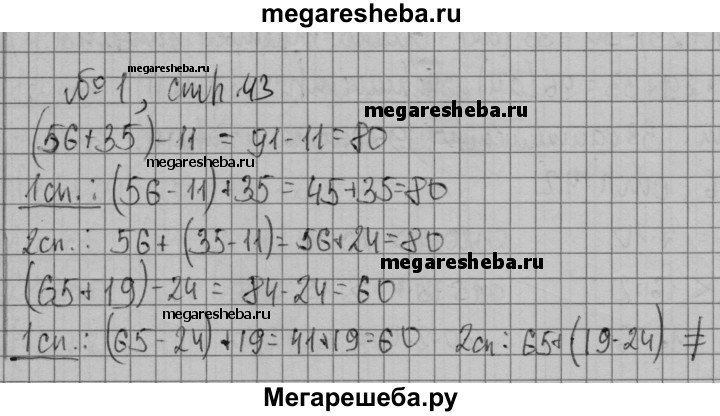 megaresheba.ru
megaresheba.ru
№ 1, стр. 43
megaresheba.ru
(56+35)-11 = 91-11=80
megaresheba.ru
1сп.: (56-11)+35=45+35=80
2сп.: 56+(35-11)=56+24=80
megaresheba.ru
(65+19)-24= 84-24=60
megaresheba.ru
1сп.: (65-24)+19=41+19=60 2сп: 65+(19-24) ≠
Мегарешеба.ру